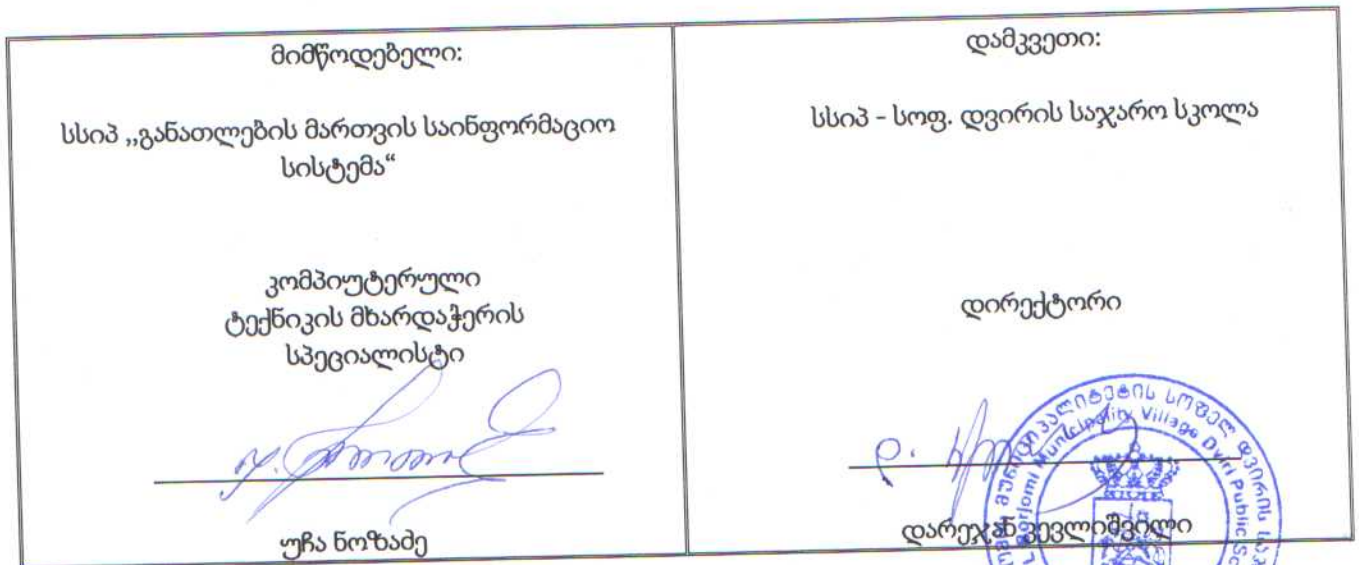 მიმწოდებელი:
სსიპ „განათლების მართვის საინფორმაციო
სისტემა“
კომპიუტერული
ტექნიკის მხარდაჭერის
სპეციალისტი
უჩა ნოზაძე
დამკვეთი:
სსიპ - სოფ. დვირის საჯარო სკოლა
დირექტორი
დარეჯან
მუნიციპალიტეტის სოფელ დვირის
Borjomi Municipality Village Dviri Public